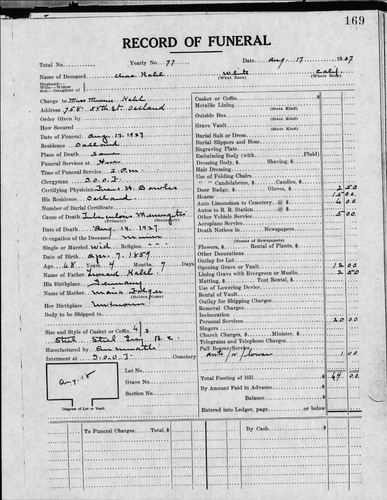 169
RECORD OF FUNERAL
Total No. Yearly No. 77 Date Aug. 17 1927
Name of Deceased Chas. White Calif
(What Race) (Where Born)
Husband—
Wife—Widow
Son—Daughter of
Charge to Miss Minnie
Address 758 - 55th St. Oakland
Order Given by
How Secured
Date of Funeral Aug. 17. 1927
Residence Oakland
Place of Death Same
Funeral Services at Here
Time of Funeral Service 2 P.M.
Clergyman I.O.O.F.
Certifying Physician H. Bowles
His Residence Oakland
Number of Burial Certificate
Cause of Death Tuberculous Meningitis
Date of Death Aug. 14. 1927
Occupation of the Deceased Miner
Single or Married Wid. Religion
Date of Birth Apr. 7. 1859
Age 68 Years 4 Months 7 Days
Name of Father
His Birthplace Germany
Name of Mother Maria
(Maiden Name)
Her Birthplace Unknown
Body to be Shipped to
Size and Style of Casket or Coffin 6/3
Steel Gray
Manufactured by
Interment at I.O.O.F. Cemetery
Aug. 18
Diagram of Lot or Vault
Lot No.
Grave No.
Section No.
Casket or Coffin
Metallic Lining
(State Kind)
Outside Box
(State Kind)
Grave Vault
(State Kind)
Burial Suit or Dress
Burial Slippers and Hose
Engraving Plate
Embalming Body (with Fluid)
Dressing Body, $ Shaving, $
Hair Dressing
Use of Folding Chairs
" " Candelabrum, $ Candles, $
Door Badge, $ Gloves, $ 2 50
Hearse 15 00
Auto Limousines to Cemetery @ $ 6 00
Autos to R. R. Station @ $
Other Vehicle Service 5 00
Aeroplane Service
Death Notices in Newspapers
(Names of Newspapers)
Flowers, $ Rental of Plants, $
Other Decorations
Outlay for Lot
Opening Grave or Vault 12 00
Lining Grave with Evergreen or Muslin 2 50
Matting, $ Tent Rental, $
Use of Lowering Device
Rental of Vault
Outlay for Shipping Charges
Removal Charges
Incineration
Personal Services 20 00
Singers
Church Charges, $ Minister, $
Telegrams and Telephone Charges
Pall Bearer Service
Auto for flowers 1 00
Total Footing of Bill $ 64 00
By Amount Paid in Advance
Balance $
Entered into Ledger, page or below
To Funeral Charges, Total, $ By Cash $